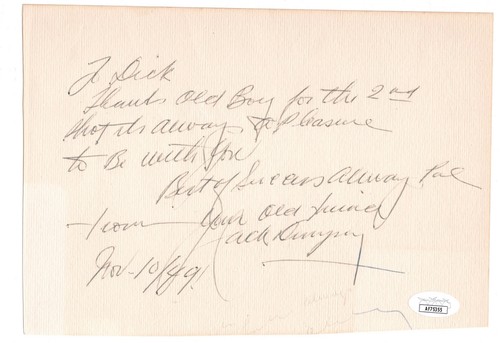 To Dick
Thanks Old Boy for the 2nd
shot its always a Pleasure
to Be with You
Best of Success Alway Pal
From Your Old Friend
Jack Dempsey
Nov-10/49
AF73255